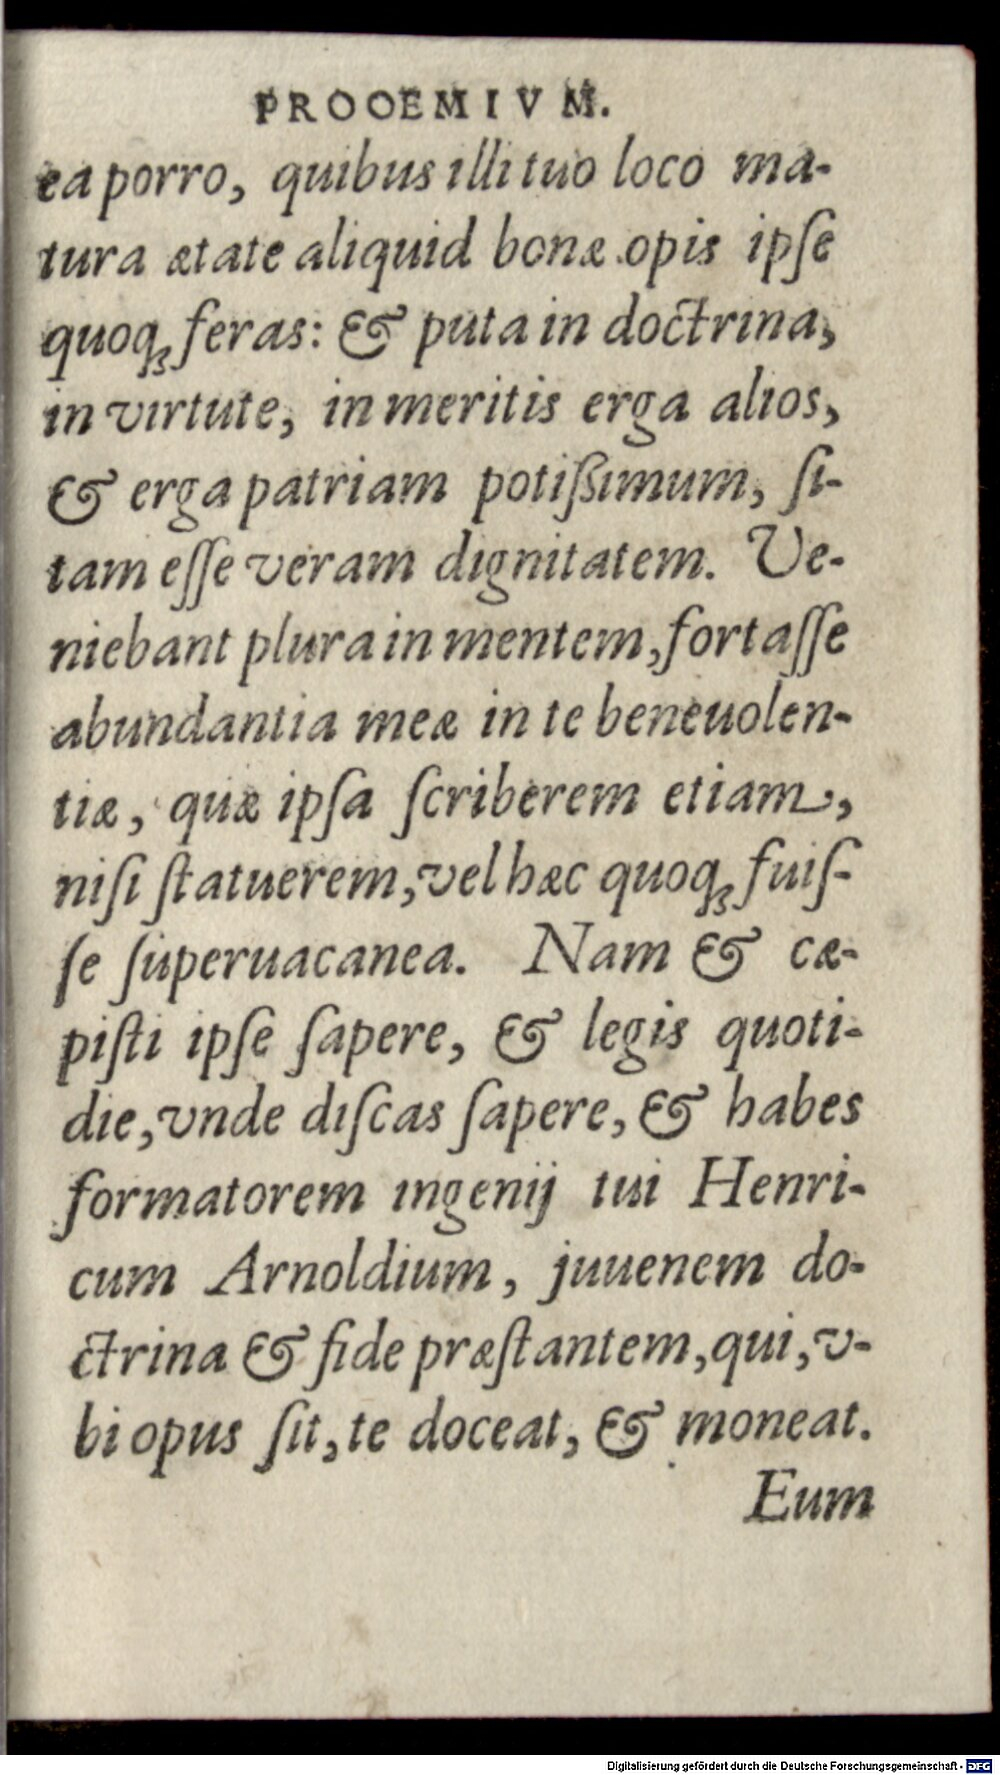 PROOEMIVM.
ea porro, quibus illi tuo loco ma-
tura ætate aliquid bonæ opis ipſe
quoq́ꝫ feras: & puta in doctrina,
in virtute, in meritis erga alios,
& erga patriam potiſſimum, ſi-
tam eſſe veram dignitatem. Ve-
niebant plura in mentem, fortaſſe
abundantia meæ in te beneuolen-
tiæ, quæ ipſa ſcriberem etiam,
niſi ſtatuerem, vel hæc quoq́ꝫ fuiſ-
ſe ſuperuacanea. Nam & cæ-
piſti ipſe ſapere, & legis quoti-
die, vnde diſcas ſapere, & habes
formatorem ingenij tui Henri-
cum Arnoldium, juuenem do-
ctrina & fide præſtantem, qui, v-
bi opus ſit, te doceat, & moneat.
Eum
Digitalisierung gefördert durch die Deutsche Forschungsgemeinschaft - DFG